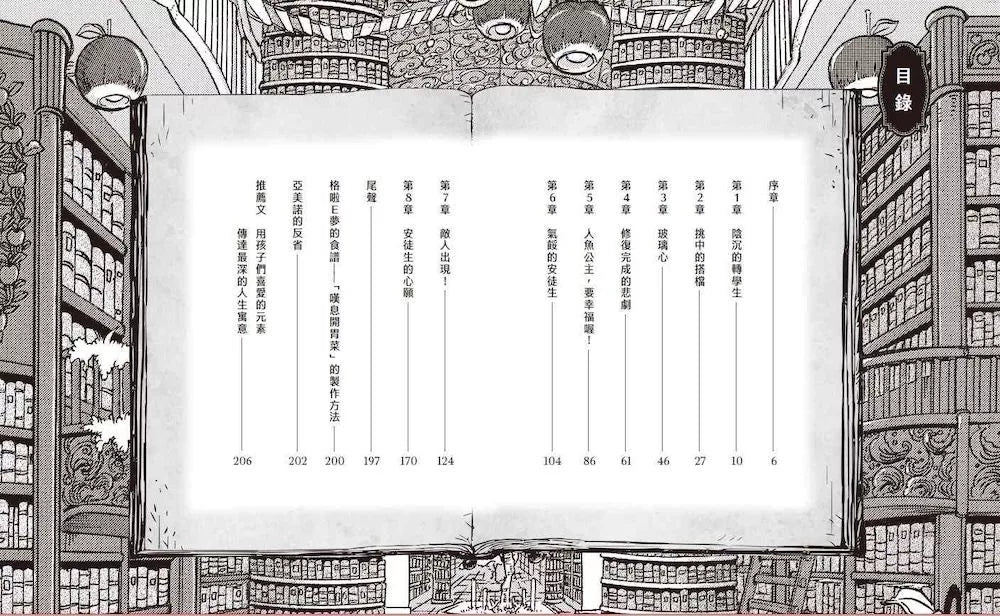 目錄
序章 6
第1章 陰沉的轉學生 10
第2章 挑中的搭檔 27
第3章 玻璃心 46
第4章 修復完成的悲劇 61
第5章 人魚公主，要幸福喔！ 86
第6章 氣餒的安徒生 104
第7章 敵人出現！ 124
第8章 安徒生的心願 170
尾聲 197
格啦E夢的食譜——「嘆息開胃菜」的製作方法 200
亞美諾的反省 202
推薦文 用孩子們喜愛的元素
傳達最深的人生寓意 206